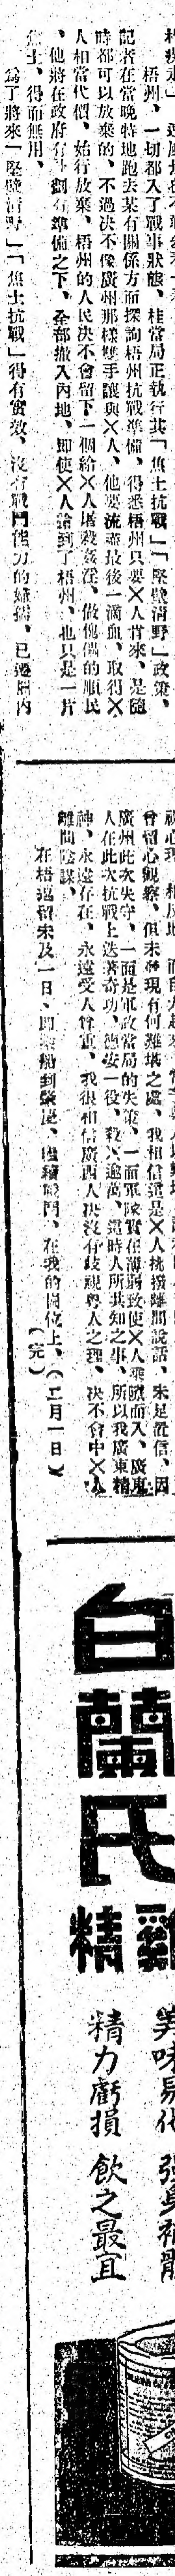 梧州、一切都入了戰事狀態、桂當局正執行其「焦土抗戰」「堅壁清野」政策、
記者在當晚特地跑去某有關係方面探詢梧州抗戰準備、得悉梧州只要✕人肯來、是隨
時都可以放棄的、不過決不像廣州那樣雙手讓與✕人、他要流盡最後一滴血、取得✕
人相當代價、始行放棄、梧州的人民決不會留下一個給✕人堵殺姦淫、做傀儡的順民
、他將在政府有計劃有準備之下、全部撤入內地、即使✕人踏到了梧州、也只是一片
焦土、得而無用、
為了將來「堅壁清野」「焦土抗戰」得有實效、沒有戰鬥能力的婦孺、已遷居內
曾留心觀察、但未發現有何離墻之處、我相信這是✕人挑撥離間說話、未足置信、因
廣州此次失守、一面是軍政當局的失策、一面軍隊實在薄弱致使✕人乘隙而入、廣東
人在此次抗戰上迭著奇功、德安一役、殺✕逾萬、這時人所共知之事、所以我廣東精
神、永遠存在、永遠受人尊重、我很相信廣西人決沒有歧視粵人之理、決不會中✕人
離間陰謀、
在梧逗留未及一日、即乘船到肇慶、繼續戰鬥、在我的崗位上、（二月一日）
（完）
白蘭氏
雞精
美味易化 強身補體
精力虧損 飲之最宜